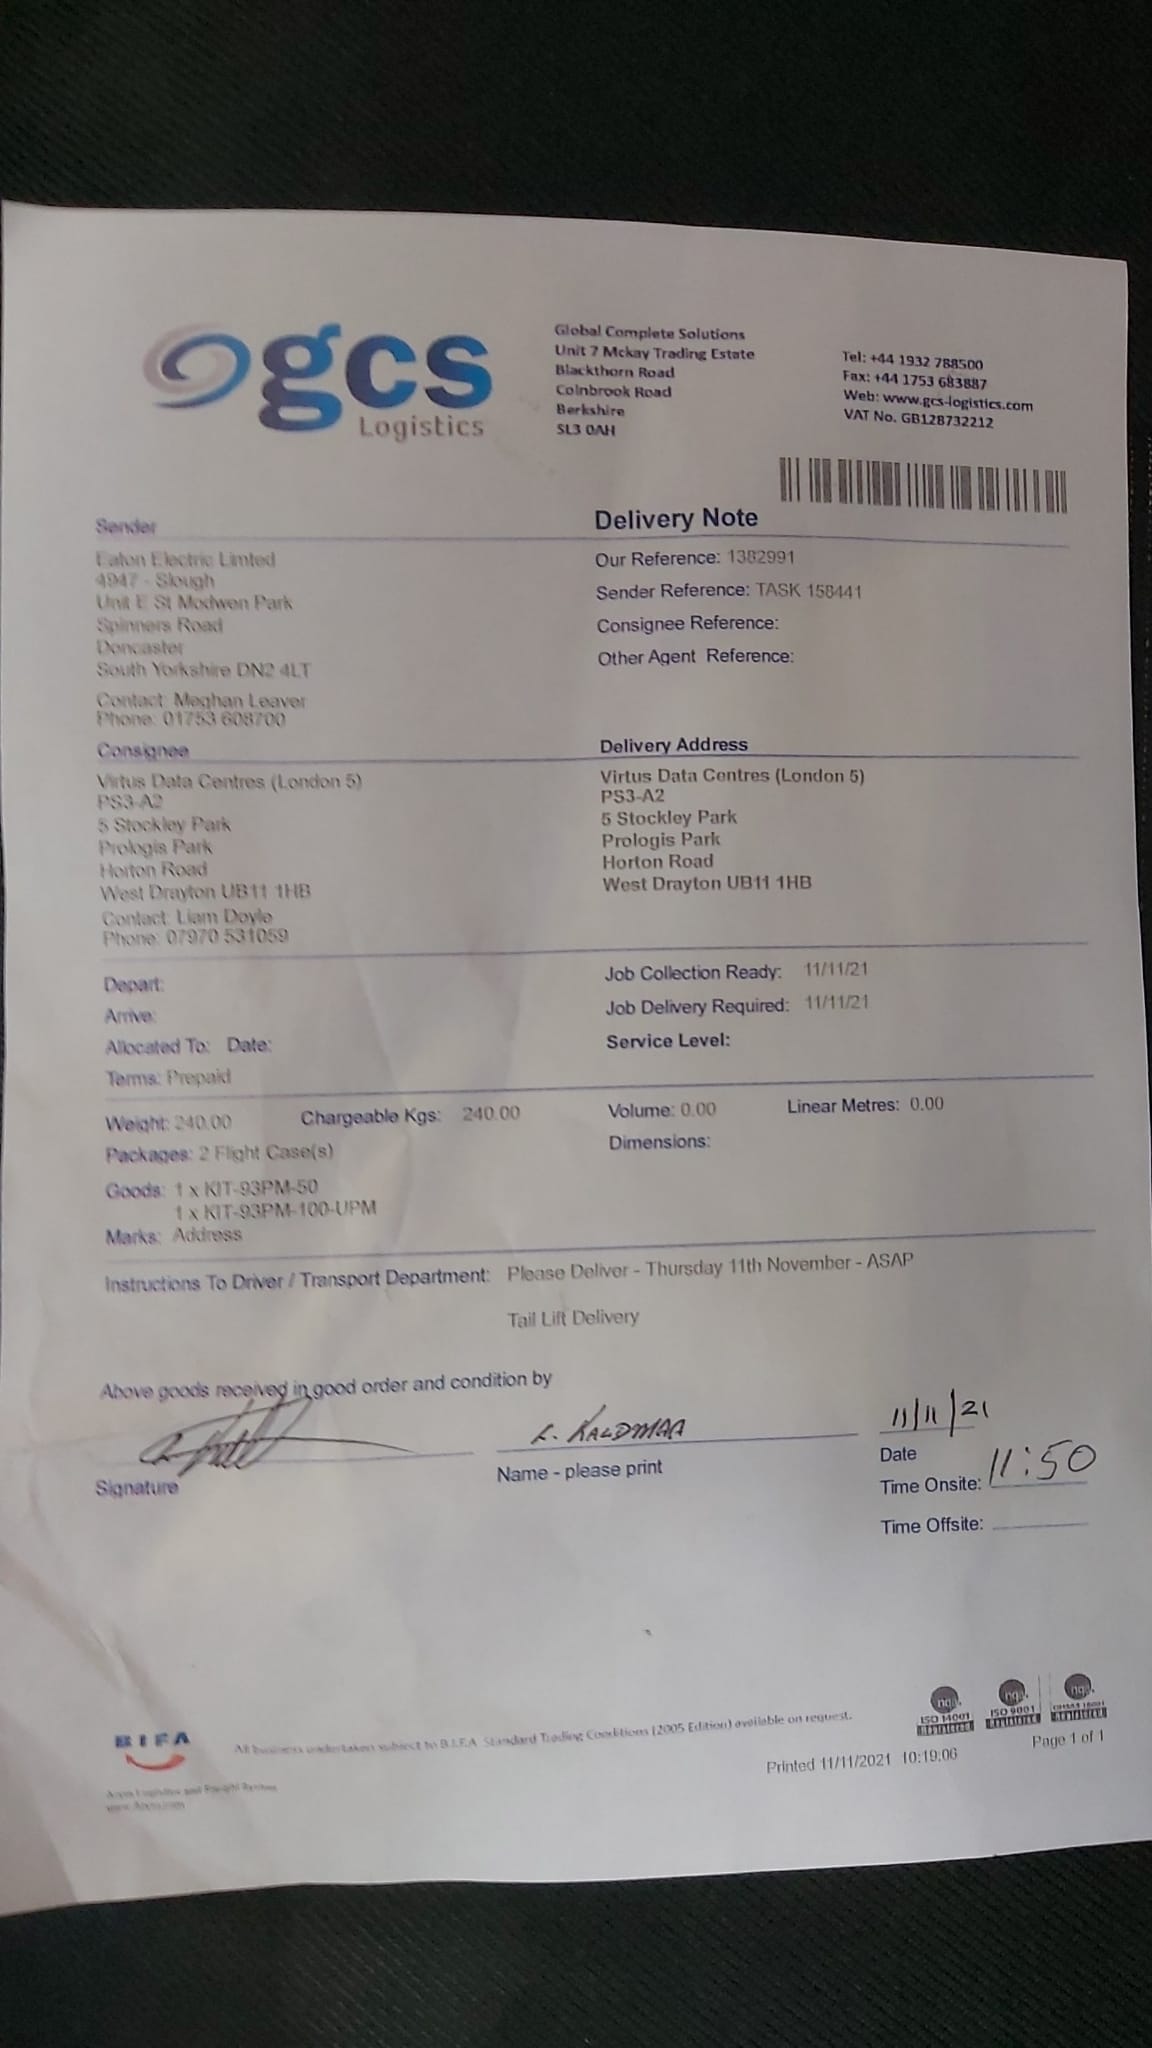 gcs
Logistics
Global Complete Solutions
Unit 7 Mckay Trading Estate
Blackthorn Road
Colnbrook Road
Berkshire
SL3 0AH
Tel: +44 1932 788500
Fax: +44 1753 683887
Web: www.gcs-logistics.com
VAT No. GB128732212
Sender
Eaton Electric Limted
4947 - Slough
Unit E St Modwen Park
Spinners Road
Doncaster
South Yorkshire DN2 4LT
Contact: Meghan Leaver
Phone: 01753 608700
Delivery Note
Our Reference: 1382991
Sender Reference: TASK 158441
Consignee Reference:
Other Agent Reference:
Consignee
Virtus Data Centres (London 5)
PS3-A2
5 Stockley Park
Prologis Park
Horton Road
West Drayton UB11 1HB
Contact: Liam Doyle
Phone: 07970 531059
Delivery Address
Virtus Data Centres (London 5)
PS3-A2
5 Stockley Park
Prologis Park
Horton Road
West Drayton UB11 1HB
Depart:
Arrive:
Allocated To: Date:
Terms: Prepaid
Job Collection Ready: 11/11/21
Job Delivery Required: 11/11/21
Service Level:
Weight: 240.00 Chargeable Kgs: 240.00 Volume: 0.00 Linear Metres: 0.00
Packages: 2 Flight Case(s) Dimensions:
Goods: 1 x KIT-93PM-50
1 x KIT-93PM-100-UPM
Marks: Address
Instructions To Driver / Transport Department: Please Deliver - Thursday 11th November - ASAP
Tail Lift Delivery
Above goods received in good order and condition by
Signature
L. KALDMAA
Name - please print
11/11/21
Date
Time Onsite: 11:50
Time Offsite:
BIFA
All business undertaken subject to B.I.F.A Standard Trading Conditions (2005 Edition) available on request.
ISO 14001
Registered
ISO 9001
Registered
OHSAS 18001
Registered
Printed 11/11/2021 10:19:06
Page 1 of 1